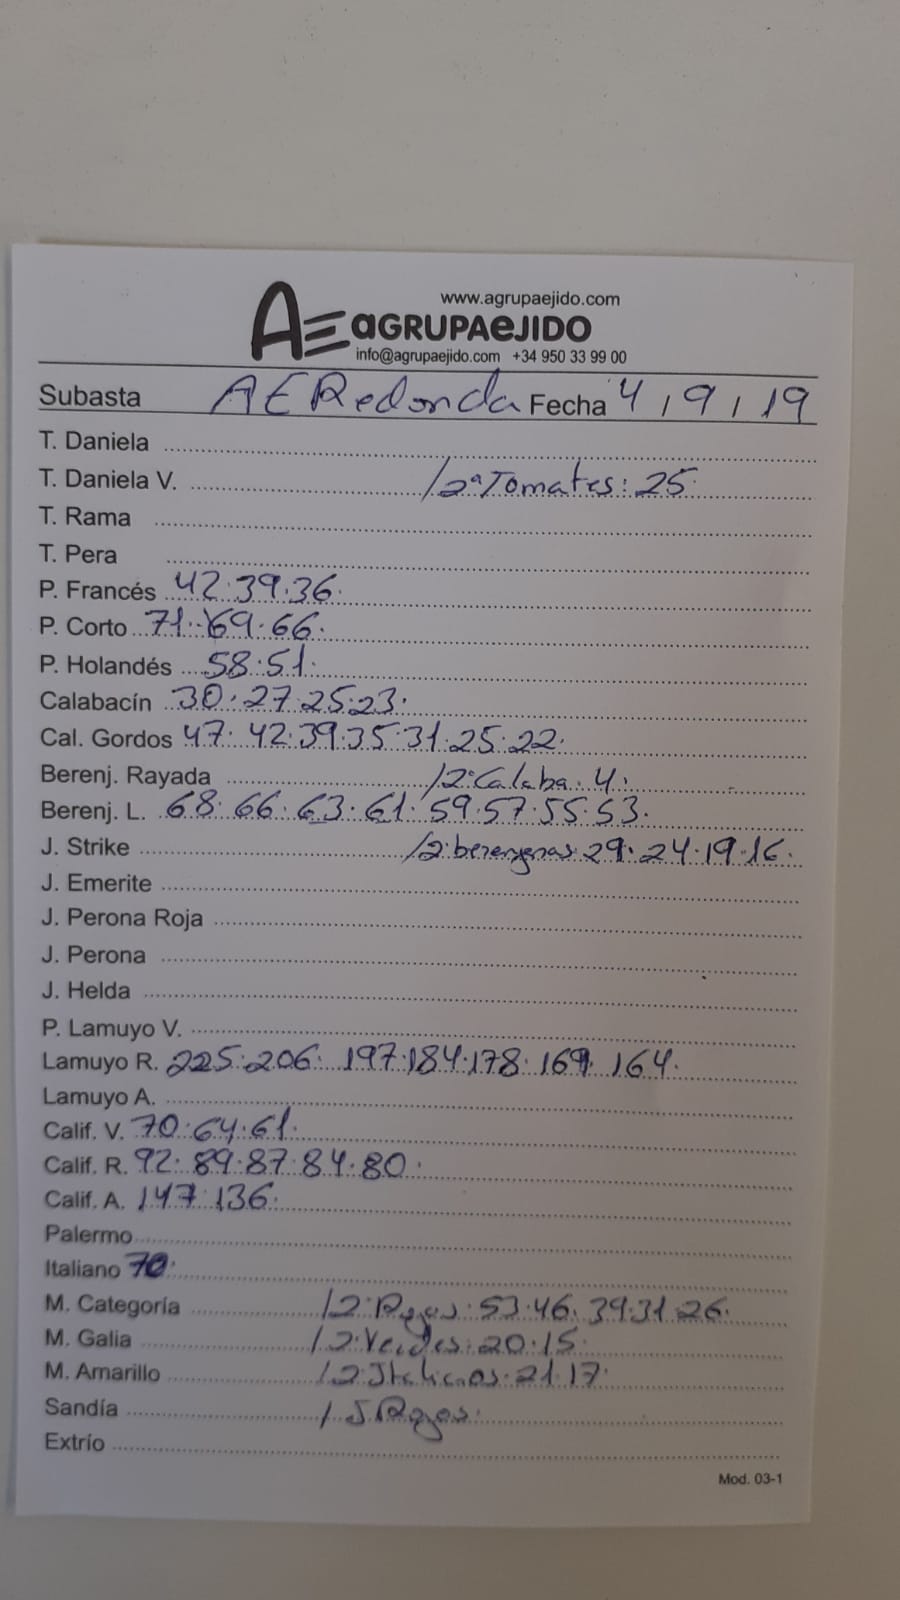 www.agrupaejido.com
AE aGRUPAeJIDO
info@agrupaejido.com +34 950 33 99 00
Subasta AERedonda Fecha 4 / 9 / 19
T. Daniela
T. Daniela V. /2ªTomates: 25.
T. Rama
T. Pera
P. Francés 42.39.36.
P. Corto 71.69.66.
P. Holandés 58.51.
Calabacín 30.27.25.23.
Cal. Gordos 47.42.39.35.31.25.22.
Berenj. Rayada /2ªCalaba. 4.
Berenj. L. 68.66.63.61.59.57.55.53.
J. Strike /2ªberenjenas 29.24.19.16.
J. Emerite
J. Perona Roja
J. Perona
J. Helda
P. Lamuyo V.
Lamuyo R. 225.206.197.184.178.169.164.
Lamuyo A.
Calif. V. 70.64.61.
Calif. R. 92.89.87.84.80.
Calif. A. 147.136.
Palermo
Italiano 70.
M. Categoría /2ªRojos: 53.46.39.31.26.
M. Galia /2ªVerdes: 20.15.
M. Amarillo /2ªItalianos: 21.17.
Sandía / J.Rojos.
Extrío
Mod. 03-1